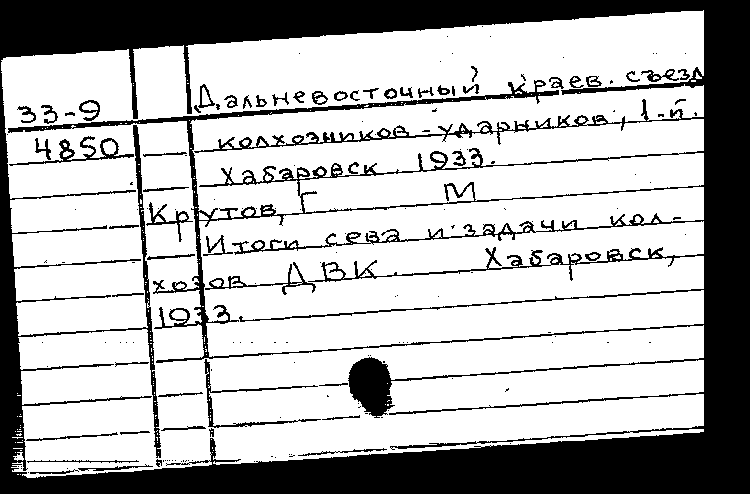 33-9 Дальневосточный краев. съезд
4850 колхозников-ударников, 1-й.
Хабаровск. 1933.
Крутов, Г М
Итоги сева и задачи кол-
хозов ДВК. Хабаровск,
1933.